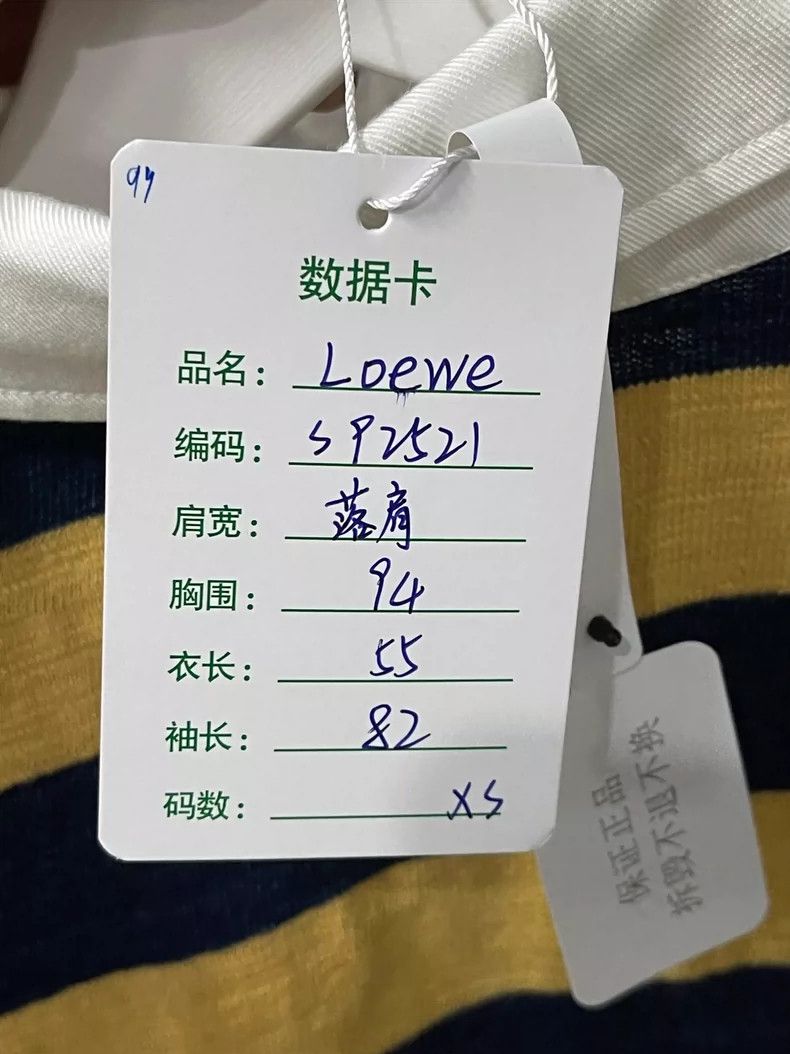 94
数据卡
品名： Loewe
编码： SP2521
肩宽： 落肩
胸围： 94
衣长： 55
袖长： 82
码数： XS
保证正品
拆毁不退不换